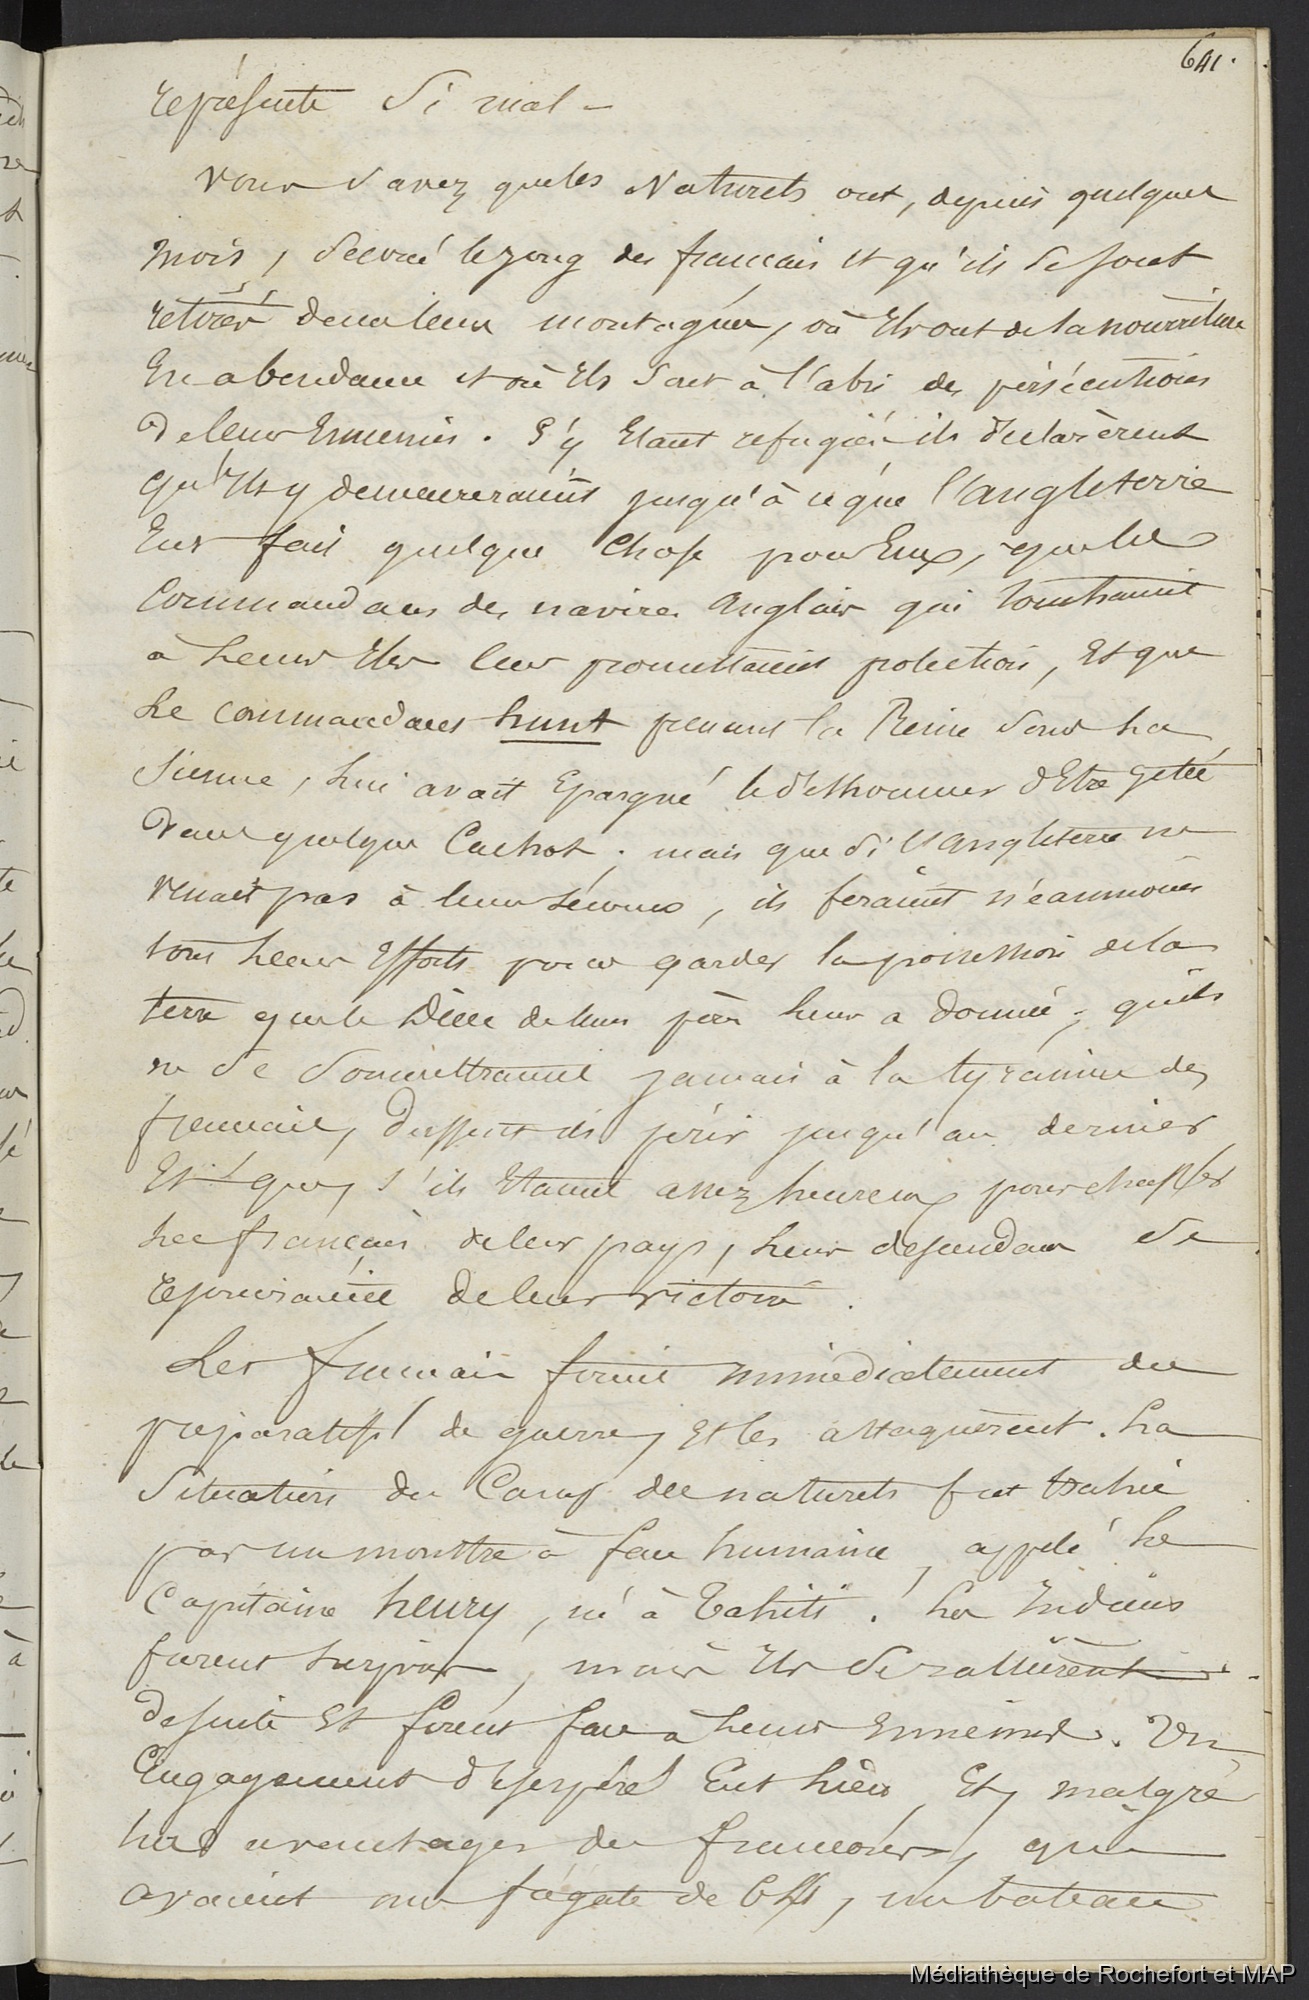 641.
représente si mal –
Vous savez que les Naturels ont, depuis quelques
mois, secoué le joug des français et qu'ils se sont
retirés dans leurs montagnes, où Ils ont de la nourriture
En abondance et où Ils sont à l'abri des persécutions
de leurs Ennemis. S'y Etant refugiés ils déclarèrent
qu'Ils y demeureraient jusqu'à ce que l'angleterre
Eut fait quelque chose pour Eux, que les
Commandans des navires anglais qui
à leurs Iles leur promettaient protection, Et que
Le commandant hunt prenant la Reine sous la
sienne, lui avait Epargné le déshonneur d'Etre jetée
dans quelque Cachot. mais que si l'angleterre ne
venait pas à leur secours, ils feraient néanmoins
tous leurs Efforts pour garder la possession de la
terre que le Dieu de leurs pères leur a donnée; qu'ils
ne se soumettraient jamais à la tyrannie des
français, dussent ils périr jusqu'au dernier,
Et que, s'ils Etaient assez heureux pour chasser
les français de leur pays, leurs descendans se
rejouiraient de leur victoire.
Les français firent immédiatement des
préparatifs de guerre, Et les attaquèrent. La
situation du Camp des naturels fut trahie
par un monstre à face humaine, appelé le
Capitaine henry, né à Tahiti! Les Indiens
furent surpris, mais Ils se rallièrent
de suite Et firent face à leurs Ennemis. Un
Engagement désespéré Eut lieu, Et, malgré
les avantages des français, qui
avaient une frégate de , un bateau
Médiathèque de Rochefort et MAP